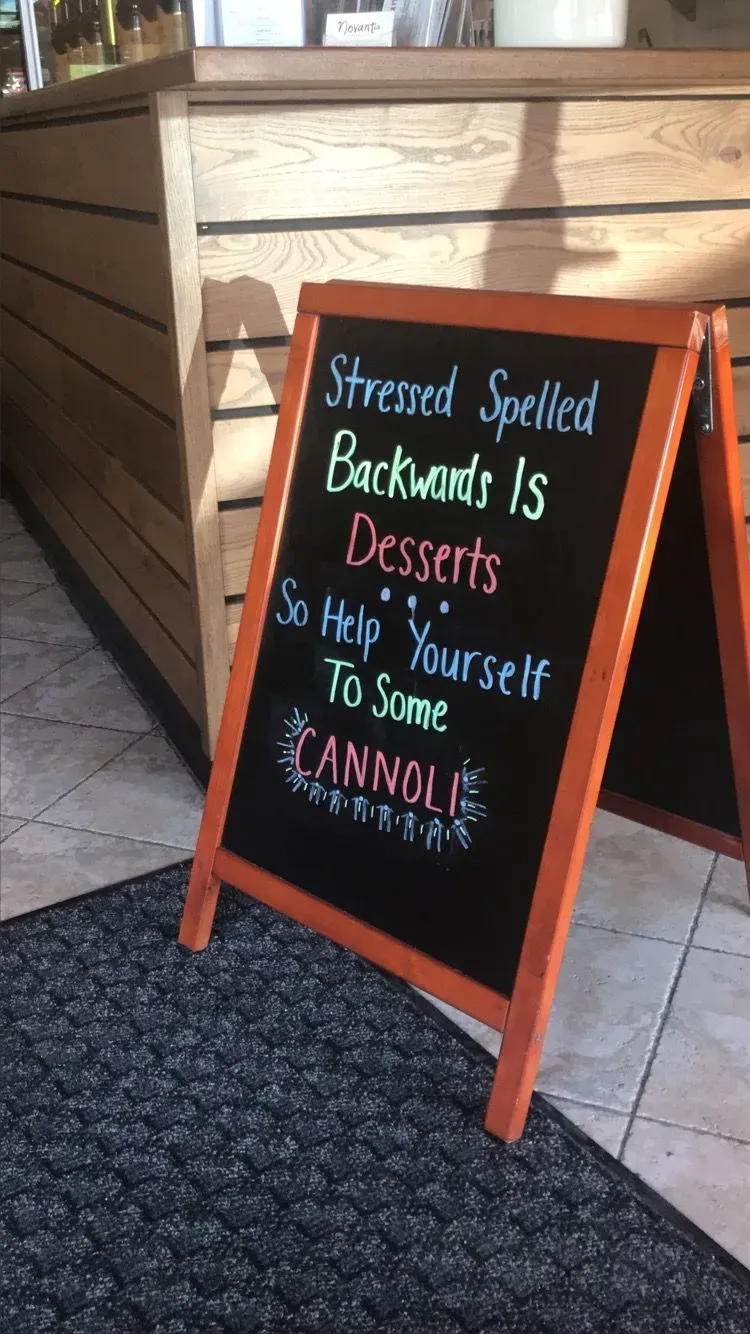 Novant
Stressed Spelled
Backwards Is
Desserts
...
So Help Yourself
To Some
CANNOLI